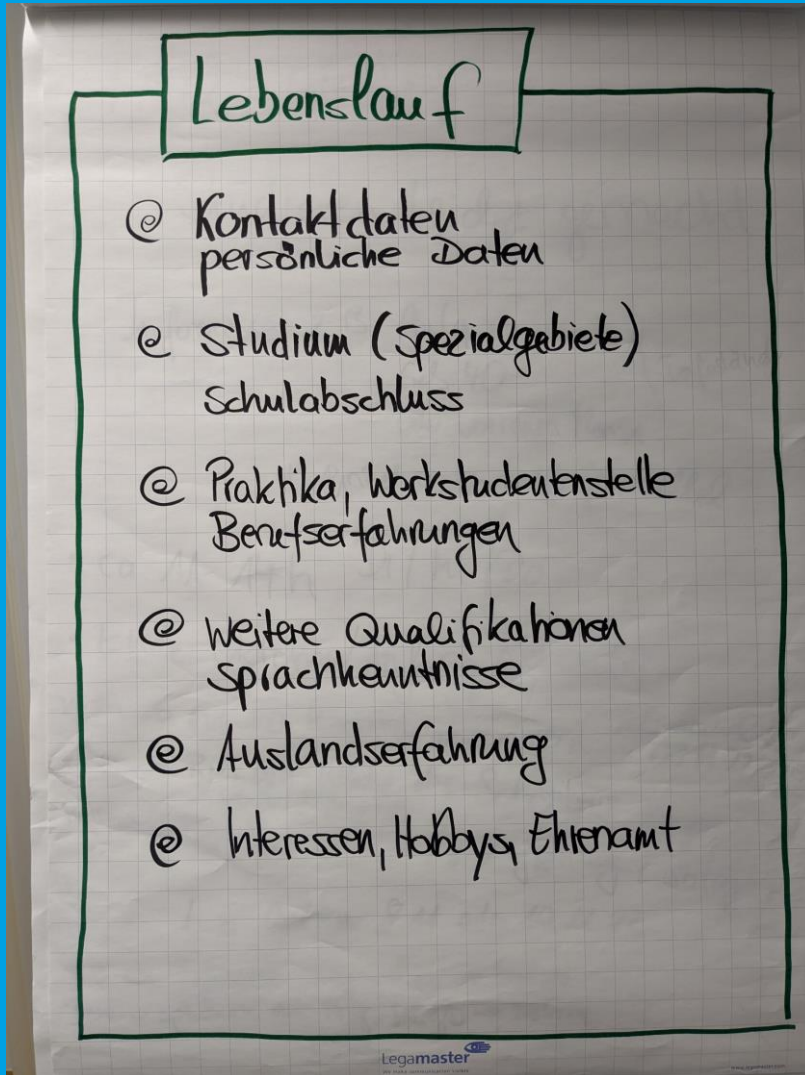 Lebenslauf
Kontaktdaten
persönliche Daten
Studium (Spezialgebiete)
Schulabschluss
Praktika, Werkstudentenstelle
Berufserfahrungen
Weitere Qualifikationen
Sprachkenntnisse
Auslandserfahrung
Interessen, Hobbys, Ehrenamt
Legamaster